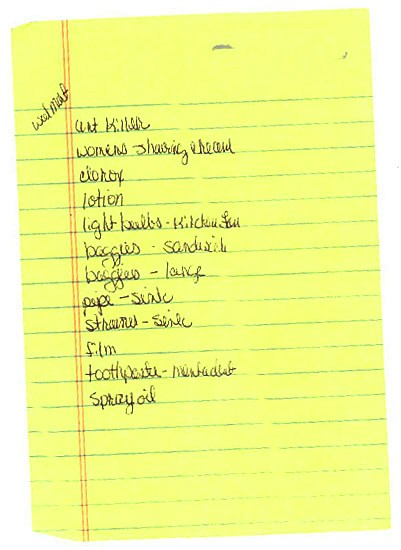 walmart
ant killer
womens shaving cream
clorox
lotion
light bulbs - kitchen fan
baggies - sandwich
baggies - large
pipe - sink
strainer - sink
film
toothpaste - mentadent
spray oil